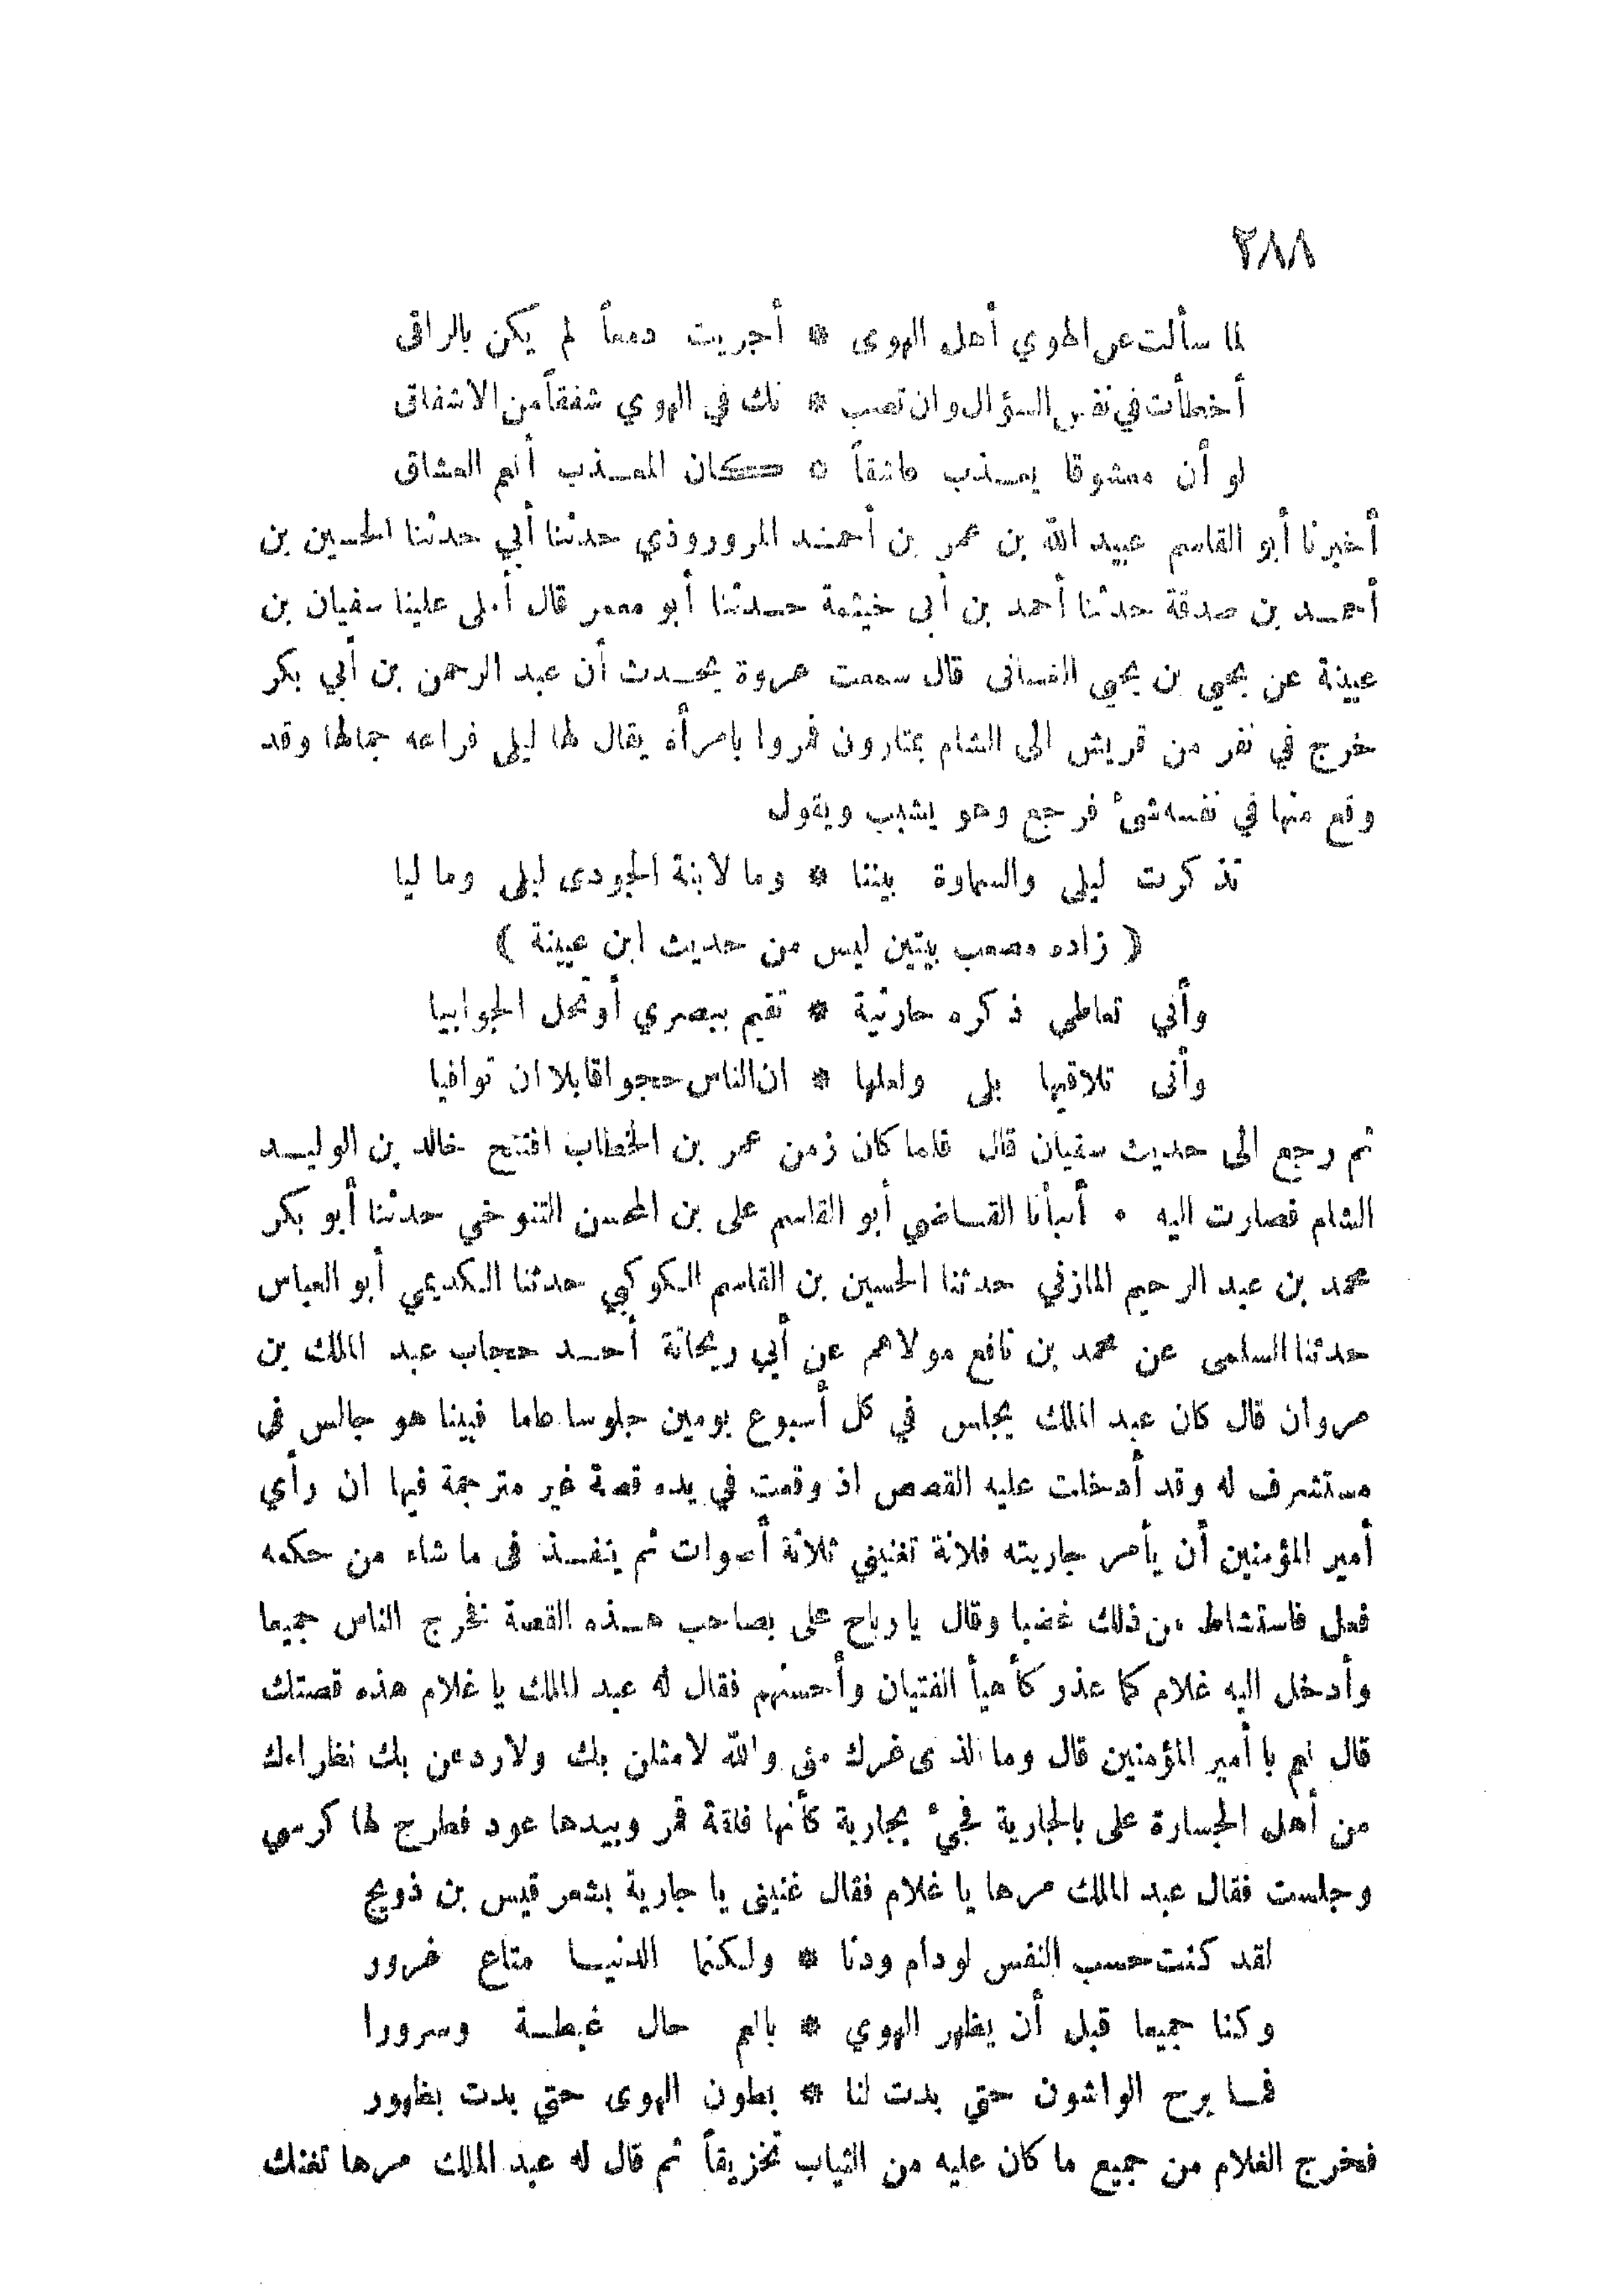 ٢٨٨
لما سألت عن الهوي أهل الهوى * أجريت دمعاً لم يكن بالراقى
أخطأت في نفس السؤال وان تصب * نك في الهوي شفقاً من الاشفاق
لو أن معشوقا يعـذب عاشقاً * كان المعـذب أنعم العشاق
أخبرنا أبو القاسم عبيد الله بن عمر بن أحمـد المروروذي حدثنا أبي حدثنا الحسين بن
أحمـد بن صدقة حدثنا أحمد بن أبى خيثمة حـدثنا أبو معمر قال أملى علينا سفيان بن
عيينة عن يحيي بن يحيي الغسانى قال سمعت عروة يحـدث أن عبد الرحمن بن أبي بكر
خرج في نفر من قريش الى الشام يمتارون فمروا بامرأة يقال لها ليلى فراعه جمالها وقد
وقع منها في نفسه شئ فرجع وهو يشبب ويقول
تذكرت ليلى والسماوة بيننا * وما لابنة الجودى ليلى وما ليا
( زاده مصعب بيتين ليس من حديث ابن عيينة )
وأني تعاطى ذكره حارثية * تقيم ببصري أو تحل الجوابيا
وأنى تلاقيها بلى ولعلها * ان الناس حجوا قابلا ان توافيا
ثم رجع الى حديث سفيان قال فلما كان زمن عمر بن الخطاب افتتح خالد بن الوليـد
الشام فصارت اليه • أنبأنا القـاضي أبو القاسم على بن المحسن التنوخي حدثنا أبو بكر
محمد بن عبد الرحيم المازني حدثنا الحسين بن القاسم الكوكبي حدثنا الكديمي أبو العباس
حدثنا السلمى عن محمد بن نافع مولاهم عن أبي ريحانة أحـد حجاب عبد الملك بن
مروان قال كان عبد الملك يجلس في كل أسبوع يومين جلوسا عاما فبينا هو جالس فى
مستشرف له وقد أدخلت عليه القصص اذ وقعت في يده قصة غير مترجمة فيها ان رأي
أمير المؤمنين أن يأمر جاريته فلانة تغنيني ثلاثة أصوات ثم ينفـذ فى ما شاء من حكمه
فعل فاستشاط من ذلك غضبا وقال يا رباح على بصاحب هـذه القصة فخرج الناس جميعا
وأدخل اليه غلام كما عذر كأهيأ الفتيان وأحسنهم فقال له عبد الملك يا غلام هذه قصتك
قال نعم يا أمير المؤمنين قال وما الذى غرك منى والله لامثلن بك ولاردعن بك نظراءك
من أهل الجسارة على بالجارية فجئ بجارية كأنها فلقة قمر وبيدها عود فطرح لها كرسي
وجلست فقال عبد الملك مرها يا غلام فقال غنينى يا جارية بشعر قيس بن ذريح
لقد كنت حسب النفس لو دام ودنا * ولكنما الدنيـا متاع غرور
وكنا جميعا قبل أن يظهر الهوي * بانعم حال غبطـة وسرورا
فمـا برح الواشون حتي بدت لنا * بطون الهوى حتي بدت بظهور
فخرج الغلام من جميع ما كان عليه من الثياب تخزيقاً ثم قال له عبد الملك مرها تغنك